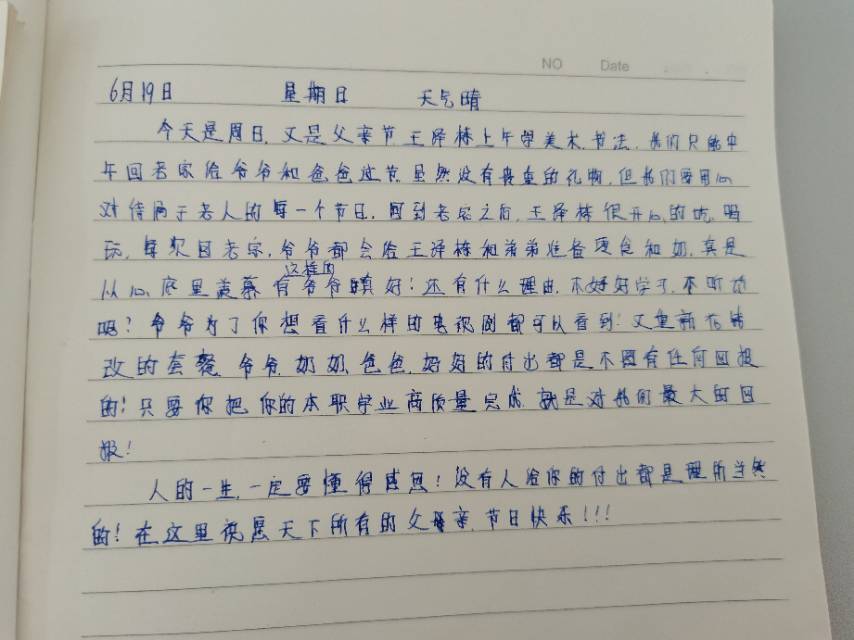 NO Date
6月19日 星期日 天气晴
今天是周日,又是父亲节王泽栋上午学美术,书法,我们只能中
午回老家给爷爷和爸爸过节虽然没有贵重的礼物,但我们要用心
对待属于老人的每一个节日,回到老家之后,王泽栋很开心的吃,喝
玩,每次回老家,爷爷都会给王泽栋和弟弟准备零食和奶,真是
从心底里羡慕有这样的爷爷真好!还有什么理由,不好好学习,不听话
呢?爷爷为了你想看什么样的电视剧都可以看到!又重新
改的套餐,爷爷,奶奶,爸爸,妈妈的付出都是不图有任何回报
的!只要你把你的本职学业高质量完成,就是对我们最大的回
报!
人的一生,一定要懂得感恩!没有人给你的付出都是理所当然
的!在这里祝愿天下所有的父母亲,节日快乐!!!